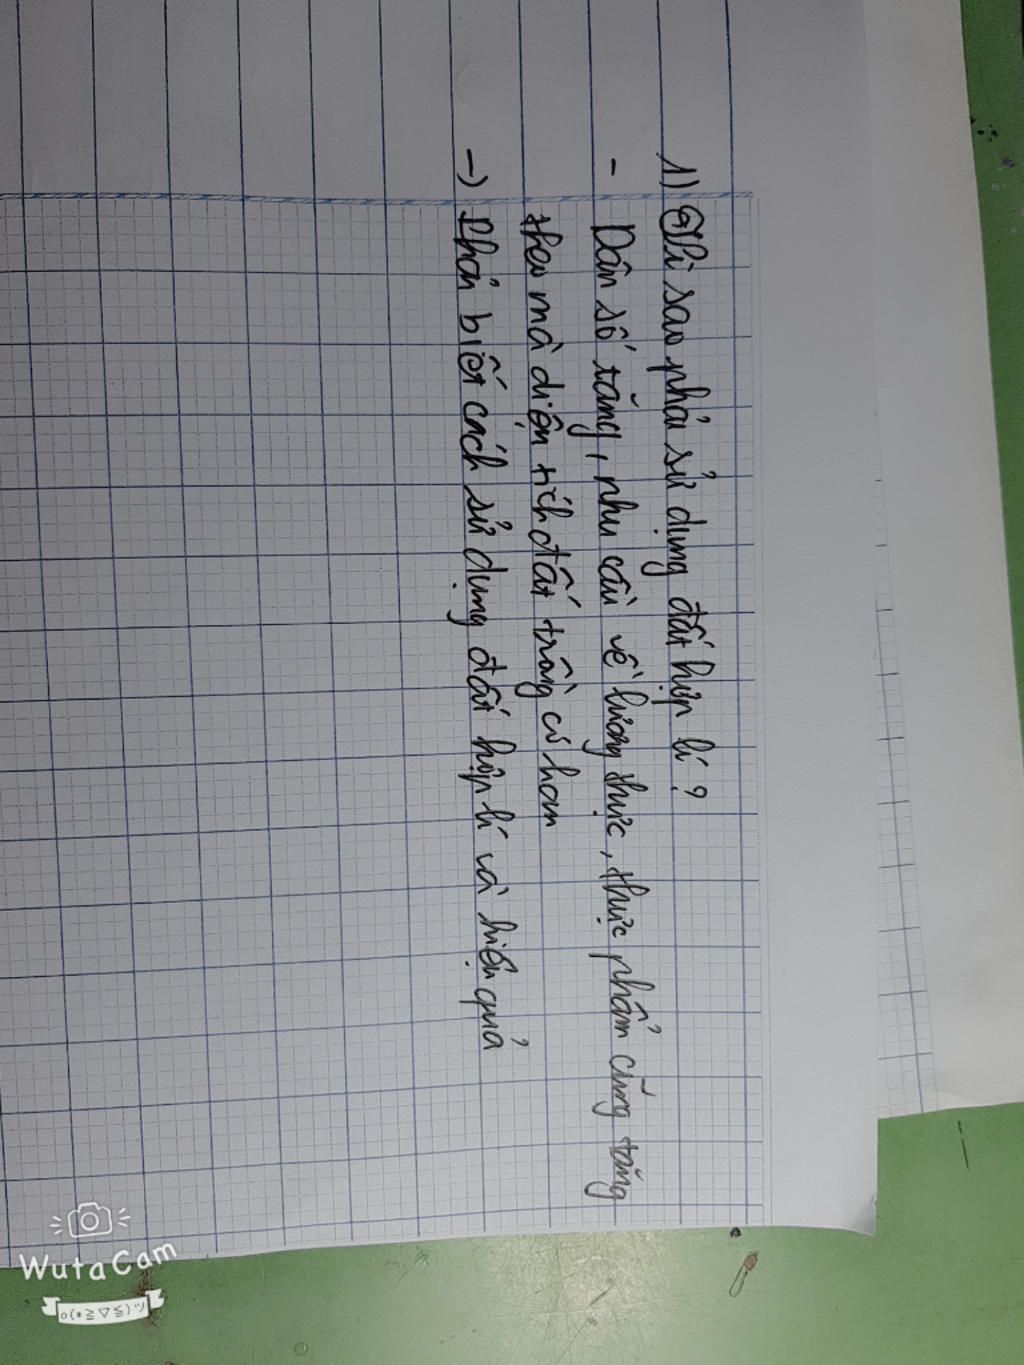 1) Vì sao phải sử dụng đất hợp lí ?
- Dân số tăng, nhu cầu về lương thực, thực phẩm cũng tăng
theo mà diện tích đất trồng có hạn
→ Phải biết cách sử dụng đất hợp lí và hiệu quả
WutaCam
o(*≧▽≦)ツ